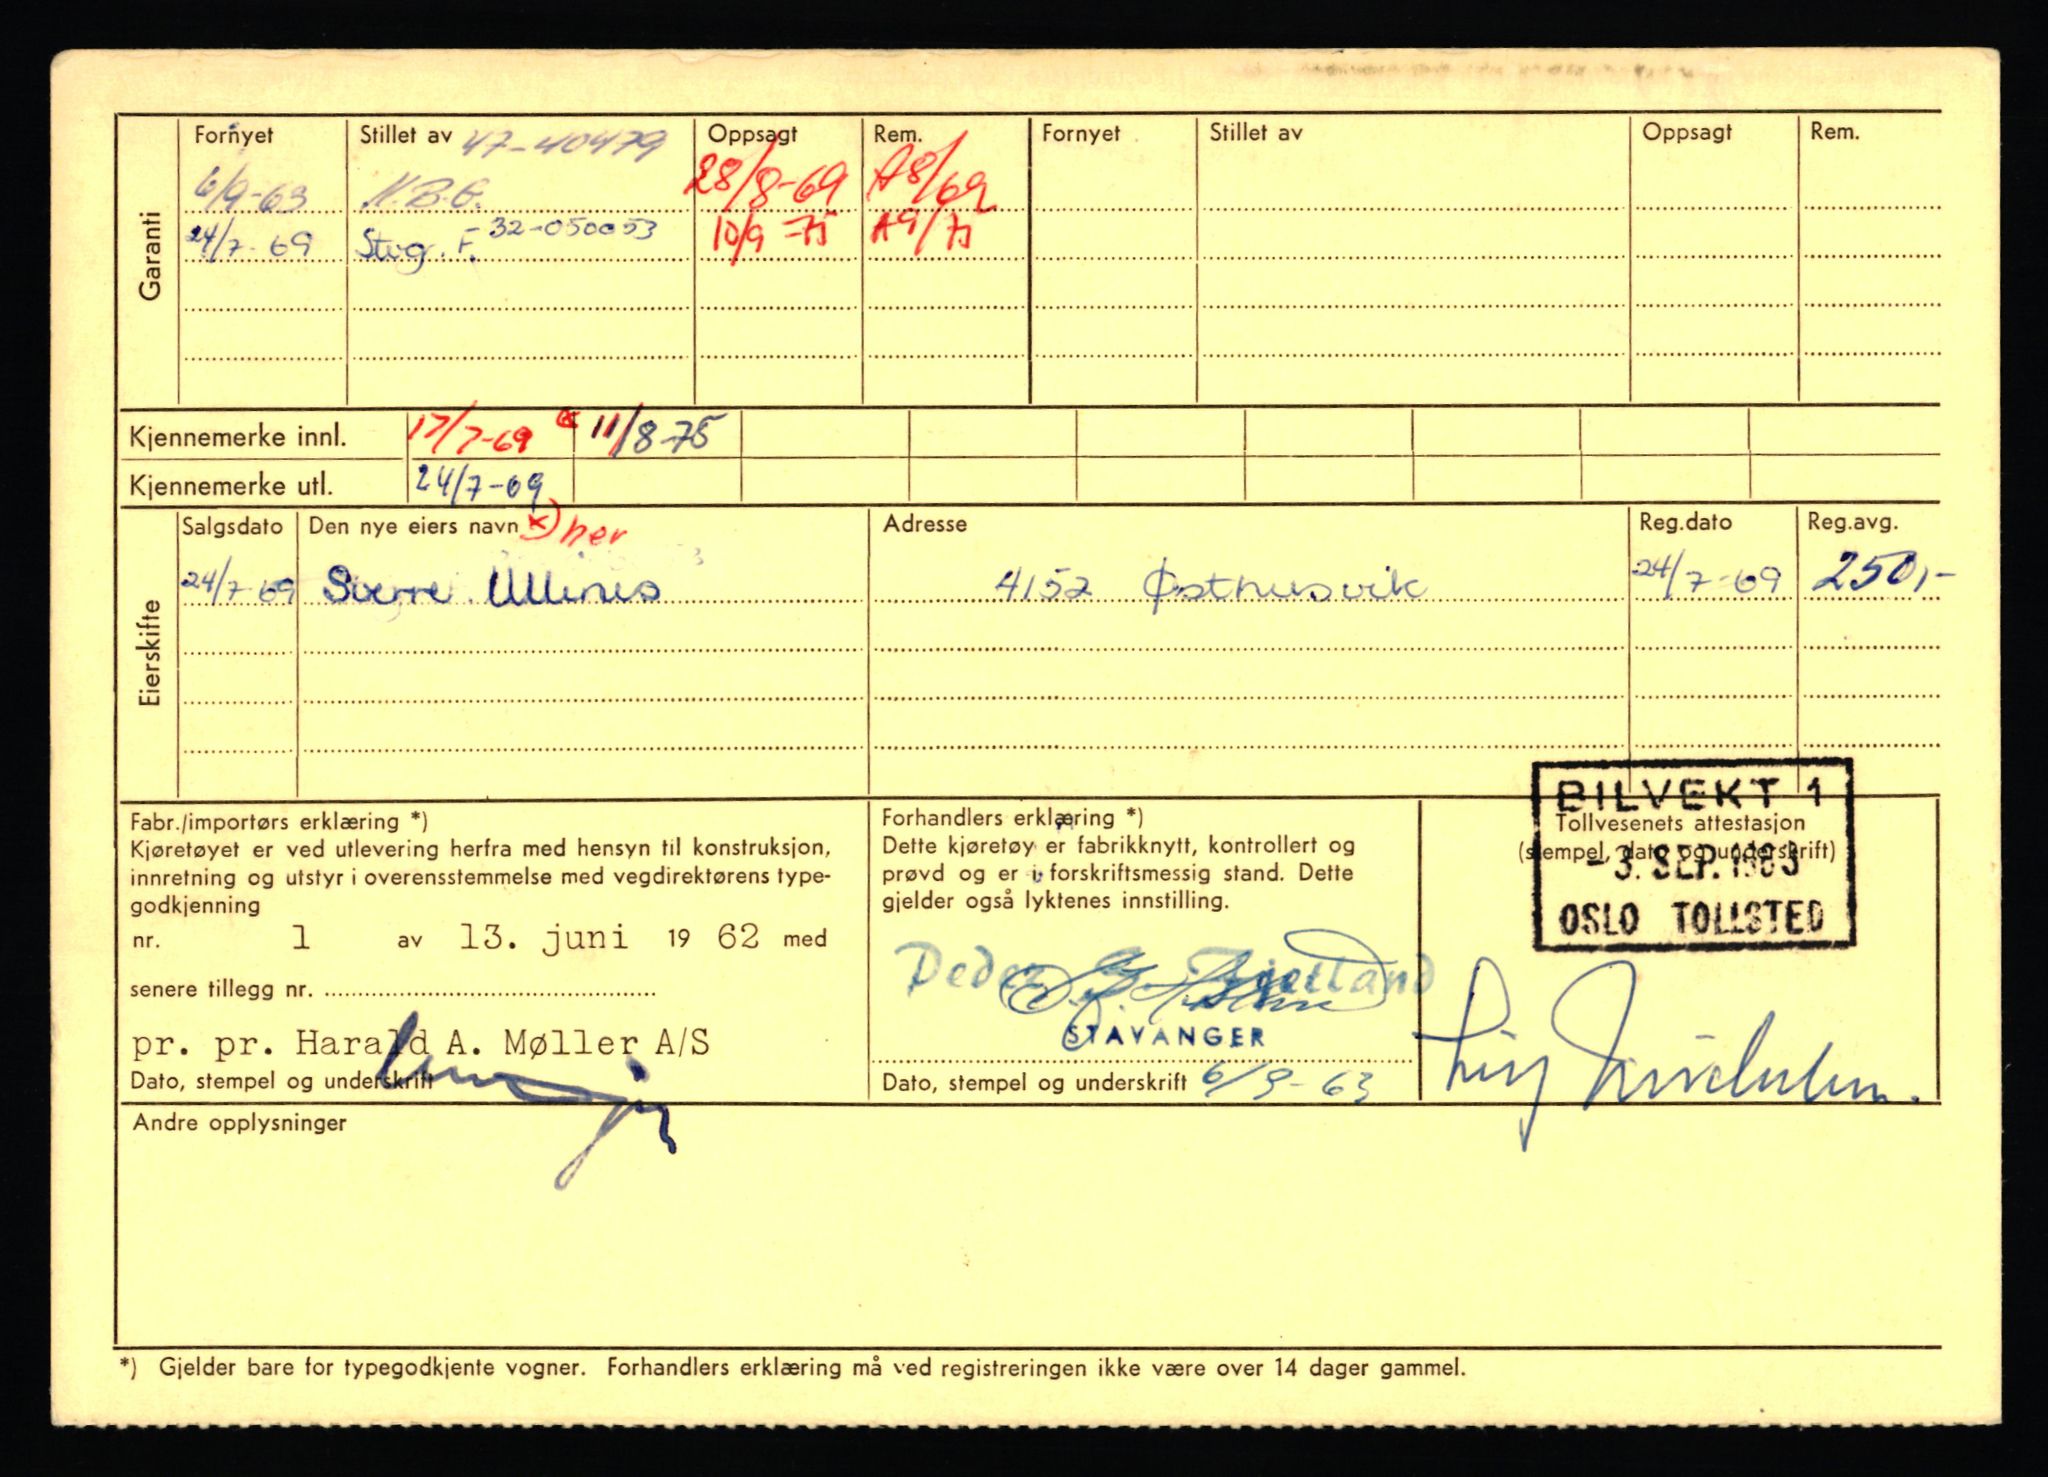 Garanti
Fornyet Stillet av 47-40479 Oppsagt Rem. Fornyet Stillet av Oppsagt Rem.
6/9-63 28/8-69 A8/69
24/7-69 Stvg. F. 32-050053 10/9-75 A9/75
Kjennemerke innl. 17/7-69 11/8-75
Kjennemerke utl. 24/7-69
Eierskifte
Salgsdato Den nye eiers navn x) her Adresse Reg.dato Reg.avg.
24/7-69 Sverre Ullines 4152 Østhusvik 24/7-69 250,-
Fabr./importørs erklæring *)
Kjøretøyet er ved utlevering herfra med hensyn til konstruksjon,
innretning og utstyr i overensstemmelse med vegdirektørens type-
godkjenning
nr. 1 av 13. juni 19 62 med
senere tillegg nr.
pr. pr. Harald A. Møller A/S
Dato, stempel og underskrift
Forhandlers erklæring *)
Dette kjøretøy er fabrikknytt, kontrollert og
prøvd og er i forskriftsmessig stand. Dette
gjelder også lyktenes innstilling.
Peder
STAVANGER
Dato, stempel og underskrift 6/9-63
BILVEKT 1
Tollvesenets attestasjon
(stempel, dato og underskrift)
-3. SEP. 1963
OSLO TOLLSTED
Andre opplysninger
*) Gjelder bare for typegodkjente vogner. Forhandlers erklæring må ved registreringen ikke være over 14 dager gammel.